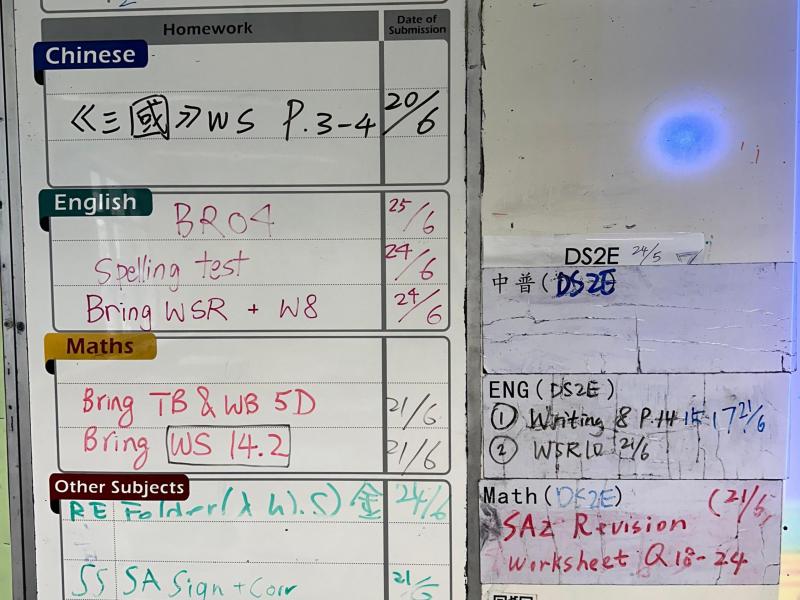 Homework
Date of Submission
Chinese
《三國》WS P.3-4 20/6
English
BR04 25/6
Spelling test 24/6
Bring WSR + W8 24/6
Maths
Bring TB & WB 5D 21/6
Bring WS 14.2 21/6
Other Subjects
RE Folder 24/6
SS SA Sign + Corr 21/6
DS2E 24/5
中普(DS2E
ENG (DS2E)
① Writing 8 P.14 15 17 21/6
② WSR10 21/6
Math (DS2E) (21/6
SA2 Revision
Worksheet Q18-24